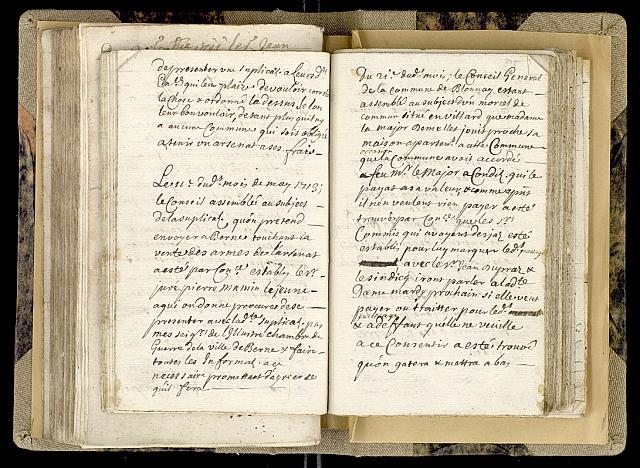 de presenter une suplicat. a leurs d.
Exc.es qu'il leur plaise de vouloir considerer
la chose & ordonner la dessus selon
leur bon vouloir, detant plus qu'il ny
a aucune Commune qui soit obligée
a tenir un arsenat a ses frais
Le 11e dudt mois de may 1713;
le Conseil assemblé au subject
de la suplicat. quon pretend
envoyer a Berne touchant la
vente des armes de larsenat
a esté par Con.e establis le Sr
juré pierre mamin le jeune
a qui on donne procure de se
presenter avec ledt suplicat. par
mes seigrs de l'Illustre chambre de
Guerre de la ville de Berne & faire
toutes les Informat. a ce
necessaire promettant dagreer ce
quil fera
Du 21e dudt mois; le Conseil General
de la commune de Blonnay estant
assemblé au subject dun morcel de
commun situé en villard que madame
la major Demelles jouit proche sa
maison appartent. a cette Commune
que la commune avoit accordé
a feu Mr. le Major a Condit. quil le
payat a sa valeur & comme
il n'en veulent rien payer a esté
trouvé par Con.e que les Srs
Commis qui avoyent desja esté
establis pour luy marquer ledt
avec le Sr. Jean Dupraz &
le sindicq iront parler a ladte
Dame mardy prochain si elle veut
payer ou traitter pour ledt
& a deffaut quelle ne veuille
a ce Consentir a esté trouvé
quon gatera & mettra a bas